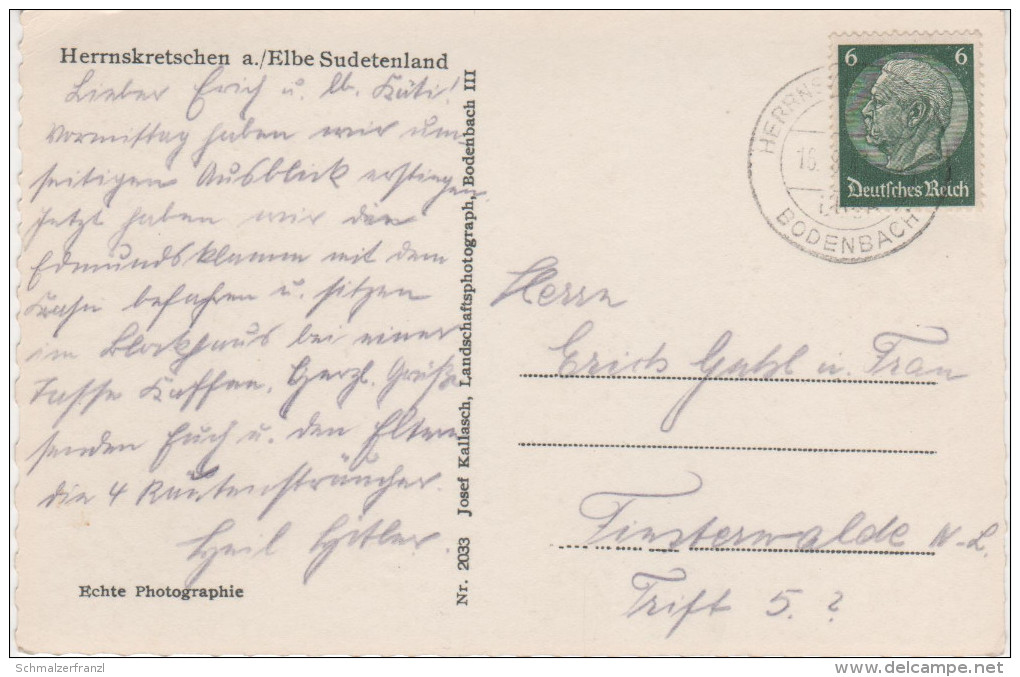 Herrnskretschen a./Elbe Sudetenland
Lieber Erich u. lb. Käti!
Vormittag haben wir um
seitigen Ausblick erstiegen.
Jetzt haben wir die
Edmundsklamm mit dem
Kahn befahren u. sitzen
im Blockhaus bei einer
Tasse Kaffee. Herzl. Grüße
senden Euch u. den Eltern
die 4 Rautensträucher.
Heil Hitler.
Echte Photographie
Nr. 2033 Josef Kallasch, Landschaftsphotograph, Bodenbach III
6 6
Deutsches Reich
BODENBACH
Herrn
Erich Gahl u. Frau
Finsterwalde N-L.
Trift 5. ?
Schmalzerfranzl
www.delcampe.net